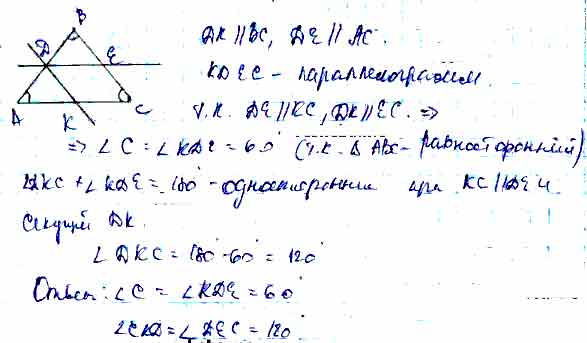 B
D E
A K C
DK || BC, DE || AC.
KDEC - параллелограмм.
т.к. DE || KC, DK || EC. =>
=> ∠C = ∠KDE = 60° (т.к. Δ ABC - равносторонний)
∠DKC + ∠KDE = 180° - односторонние при KC || DE и
секущей DK.
∠DKC = 180° - 60° = 120°
Ответ: ∠C = ∠KDE = 60°
∠CKD = ∠DEC = 120°